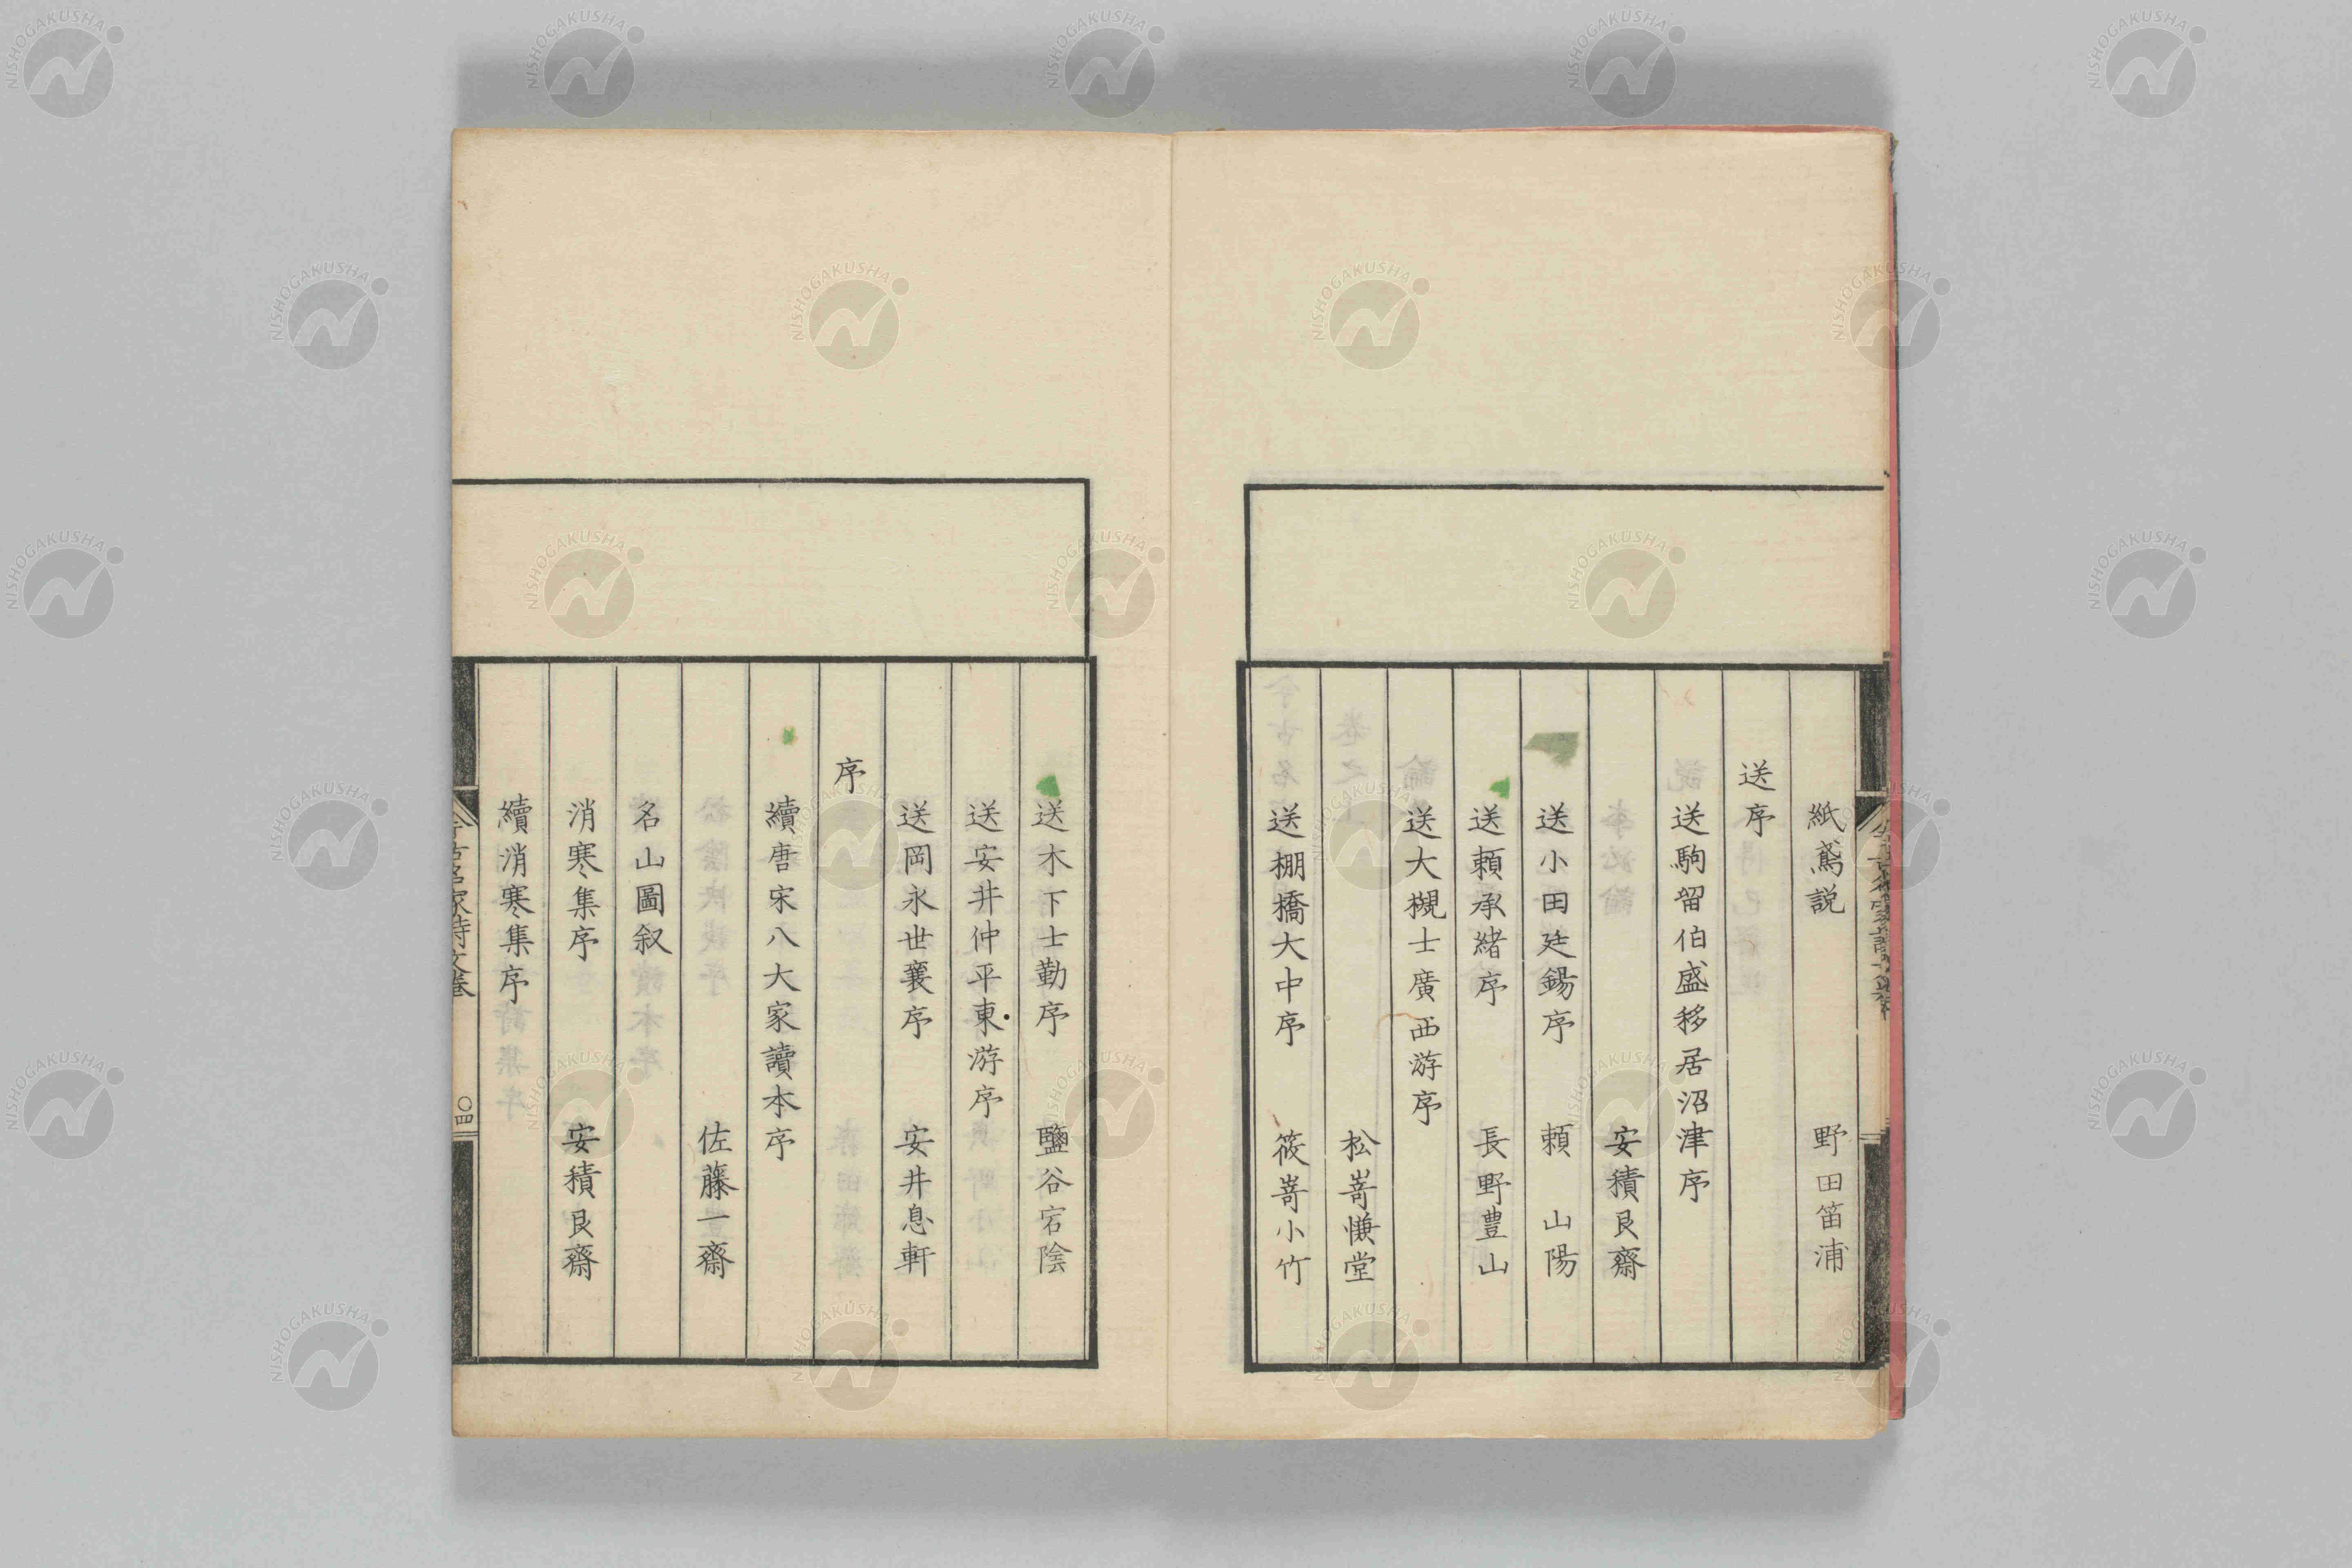 紙鳶説 野田笛浦
送序
送駒留伯盛移居沼津序
安積艮齋
送小田廷錫序 賴 山陽
送賴承緒序 長野豊山
送大槻士廣西游序
松嵜慊堂
送棚橋大中序 筱嵜小竹
送木下士勤序 鹽谷宕陰
送安井仲平東游序
送岡永世襄序 安井息軒
序
續唐宋八大家讀本序
佐藤一齋
名山圖叙
消寒集序 安積艮齋
續消寒集序
今古名家詩文卷 〇四
NISHOGAKUSHA